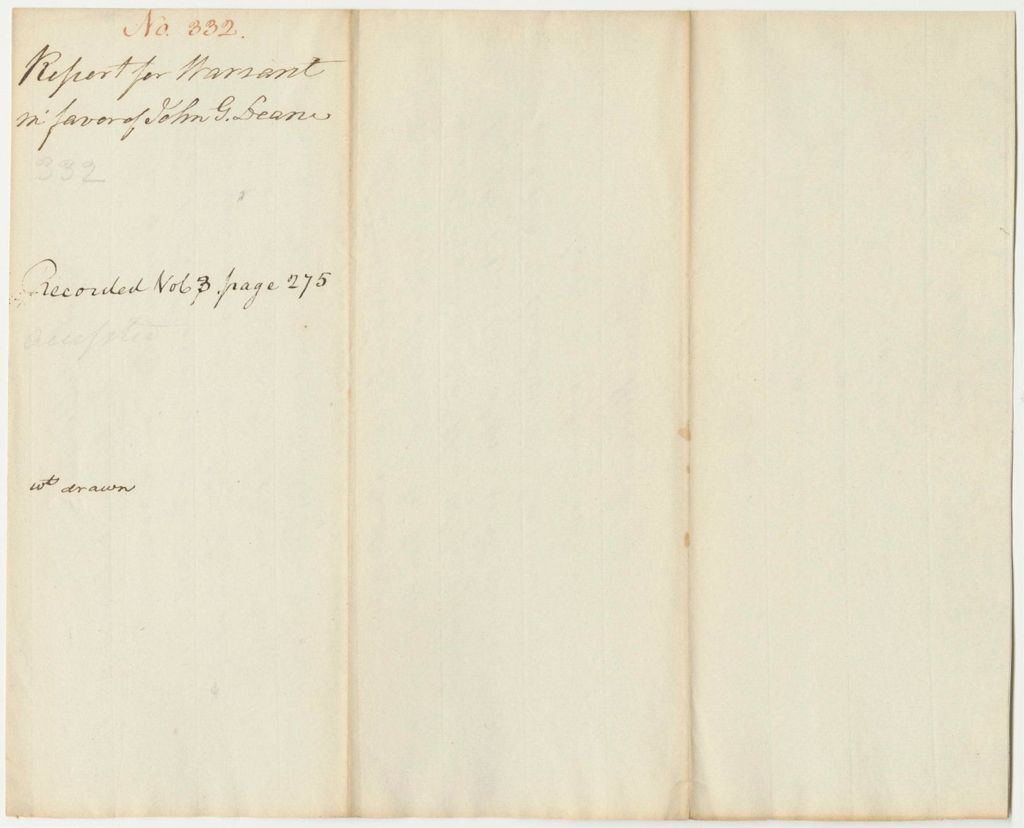 No. 332.
Report for Warrant
in favor of John G. Deane
332
Recorded Vol 3. page 275
accepted
wt drawn